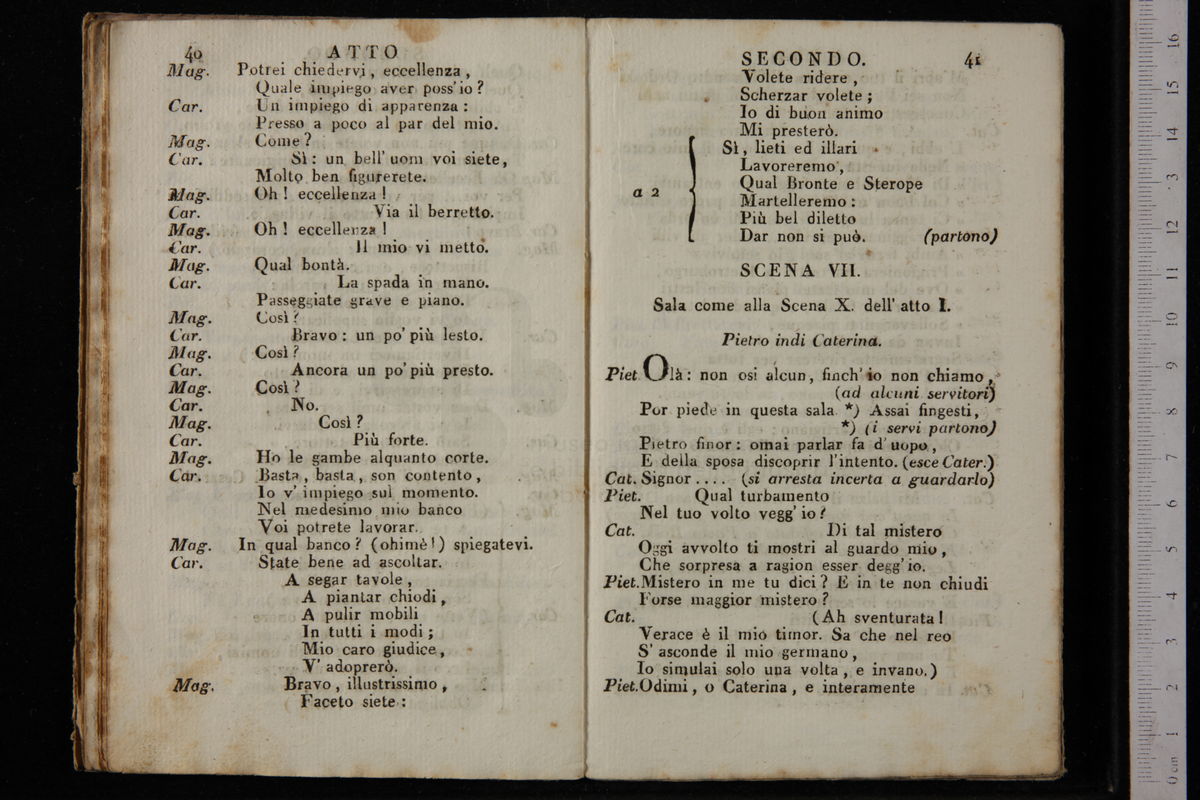 40 ATTO
Mag. Potrei chiedervi, eccellenza,
Quale impiego aver poss' io?
Car. Un impiego di apparenza:
Presso a poco al par del mio.
Mag. Come?
Car. Sì: un bell' uom voi siete,
Molto ben figurerete.
Mag. Oh! eccellenza!
Car. Via il berretto.
Mag. Oh! eccellenza!
Car. Il mio vi metto.
Mag. Qual bontà.
Car. La spada in mano.
Passeggiate grave e piano.
Mag. Così?
Car. Bravo: un po' più lesto.
Mag. Così?
Car. Ancora un po' più presto.
Mag. Così?
Car. No.
Mag. Così?
Car. Più forte.
Mag. Ho le gambe alquanto corte.
Car. Basta, basta, son contento,
Io v' impiego sul momento.
Nel medesimo mio banco
Voi potrete lavorar.
Mag. In qual banco? (ohimè!) spiegatevi.
Car. State bene ad ascoltar.
A segar tavole,
A piantar chiodi,
A pulir mobili
In tutti i modi;
Mio caro giudice,
V' adoprerò.
Mag. Bravo, illustrissimo,
Faceto siete:
SECONDO. 41
Volete ridere,
Scherzar volete;
Io di buon animo
Mi presterò.
Sì, lieti ed illari
Lavoreremo,
a 2 Qual Bronte e Sterope
Martelleremo:
Più bel diletto
Dar non si può. (partono)
SCENA VII.
Sala come alla Scena X. dell' atto I.
Pietro indi Caterina.
Piet. Olà: non osi alcun, finch' io non chiamo,
(ad alcuni servitori)
Por piede in questa sala. *) Assai fingesti,
*) (i servi partono)
Pietro finor: omai parlar fa d' uopo,
E della sposa discoprir l'intento. (esce Cater.)
Cat. Signor.... (si arresta incerta a guardarlo)
Piet. Qual turbamento
Nel tuo volto vegg' io?
Cat. Di tal mistero
Oggi avvolto ti mostri al guardo mio,
Che sorpresa a ragion esser degg' io.
Piet. Mistero in me tu dici? E in te non chiudi
Forse maggior mistero?
Cat. (Ah sventurata!
Verace è il mio timor. Sa che nel reo
S' asconde il mio germano,
Io simulai solo una volta, e invano.)
Piet. Odimi, o Caterina, e interamente
0 cm 1 2 3 4 5 6 7 8 9 10 11 12 13 14 15 16